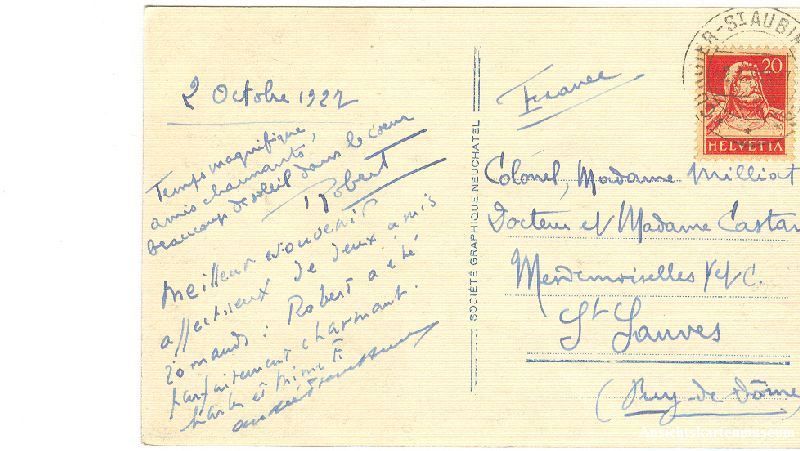 2 Octobre 1922
Temps magnifique
amis charmants,
beaucoup de soleil dans le coeur
Robert
Meilleur souvenir
affectueux de deux amis
romands : Robert a été
parfaitement charmant.
SOCIÉTÉ GRAPHIQUE NEUCHATEL
France
ST AUBIN
20
HELVETIA
Colonel, Madame Milliat
Docteur et Madame Castan
Mesdemoiselles Y et C.
St Sauves
(Puy-de-Dôme